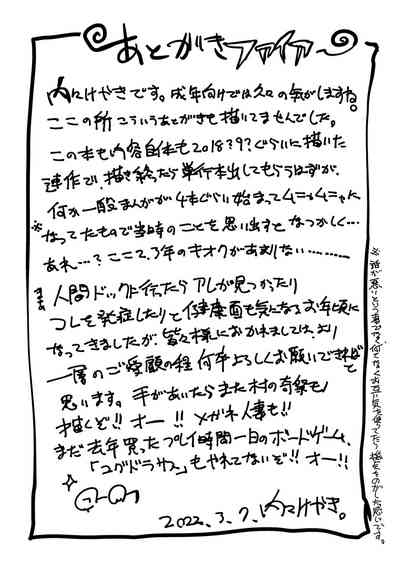 あとがきファイアー
内々けやきです。成年向けでは久々の気がしますね。
ここの所こういうあとがきも描いてませんでした。
この本も内容自体も2018?9?ぐらいに描いた
連作で、描き終ったら単行本出してもらうはずが、
何か一般まんがが4本ぐらい始まってムニャムニャに
※なってたもので当時のことを思い出すとなつかしく…
あれ…?ここ2、3年のキオクがあまりない………
まぁ人間ドックに行ったらアレが見つかったり
コレを発症したりと健康面も気になるお年頃に
なってきましたが、皆々様におかれましては、より
一層のご愛顧の程何卒よろしくお願いできればと
思います。手があいたらまた村の奇祭も
描くぞ!!オー!!メガネ人妻も!!
まだ去年買ったプレイ時間一日のボードゲーム、
「ユグドラサス」もやれてないぞ!!オー!!
2022.3.7.内々けやき。
※話が悪いという事でなく何となくお互い気を使ってたら機をのがした感じです。